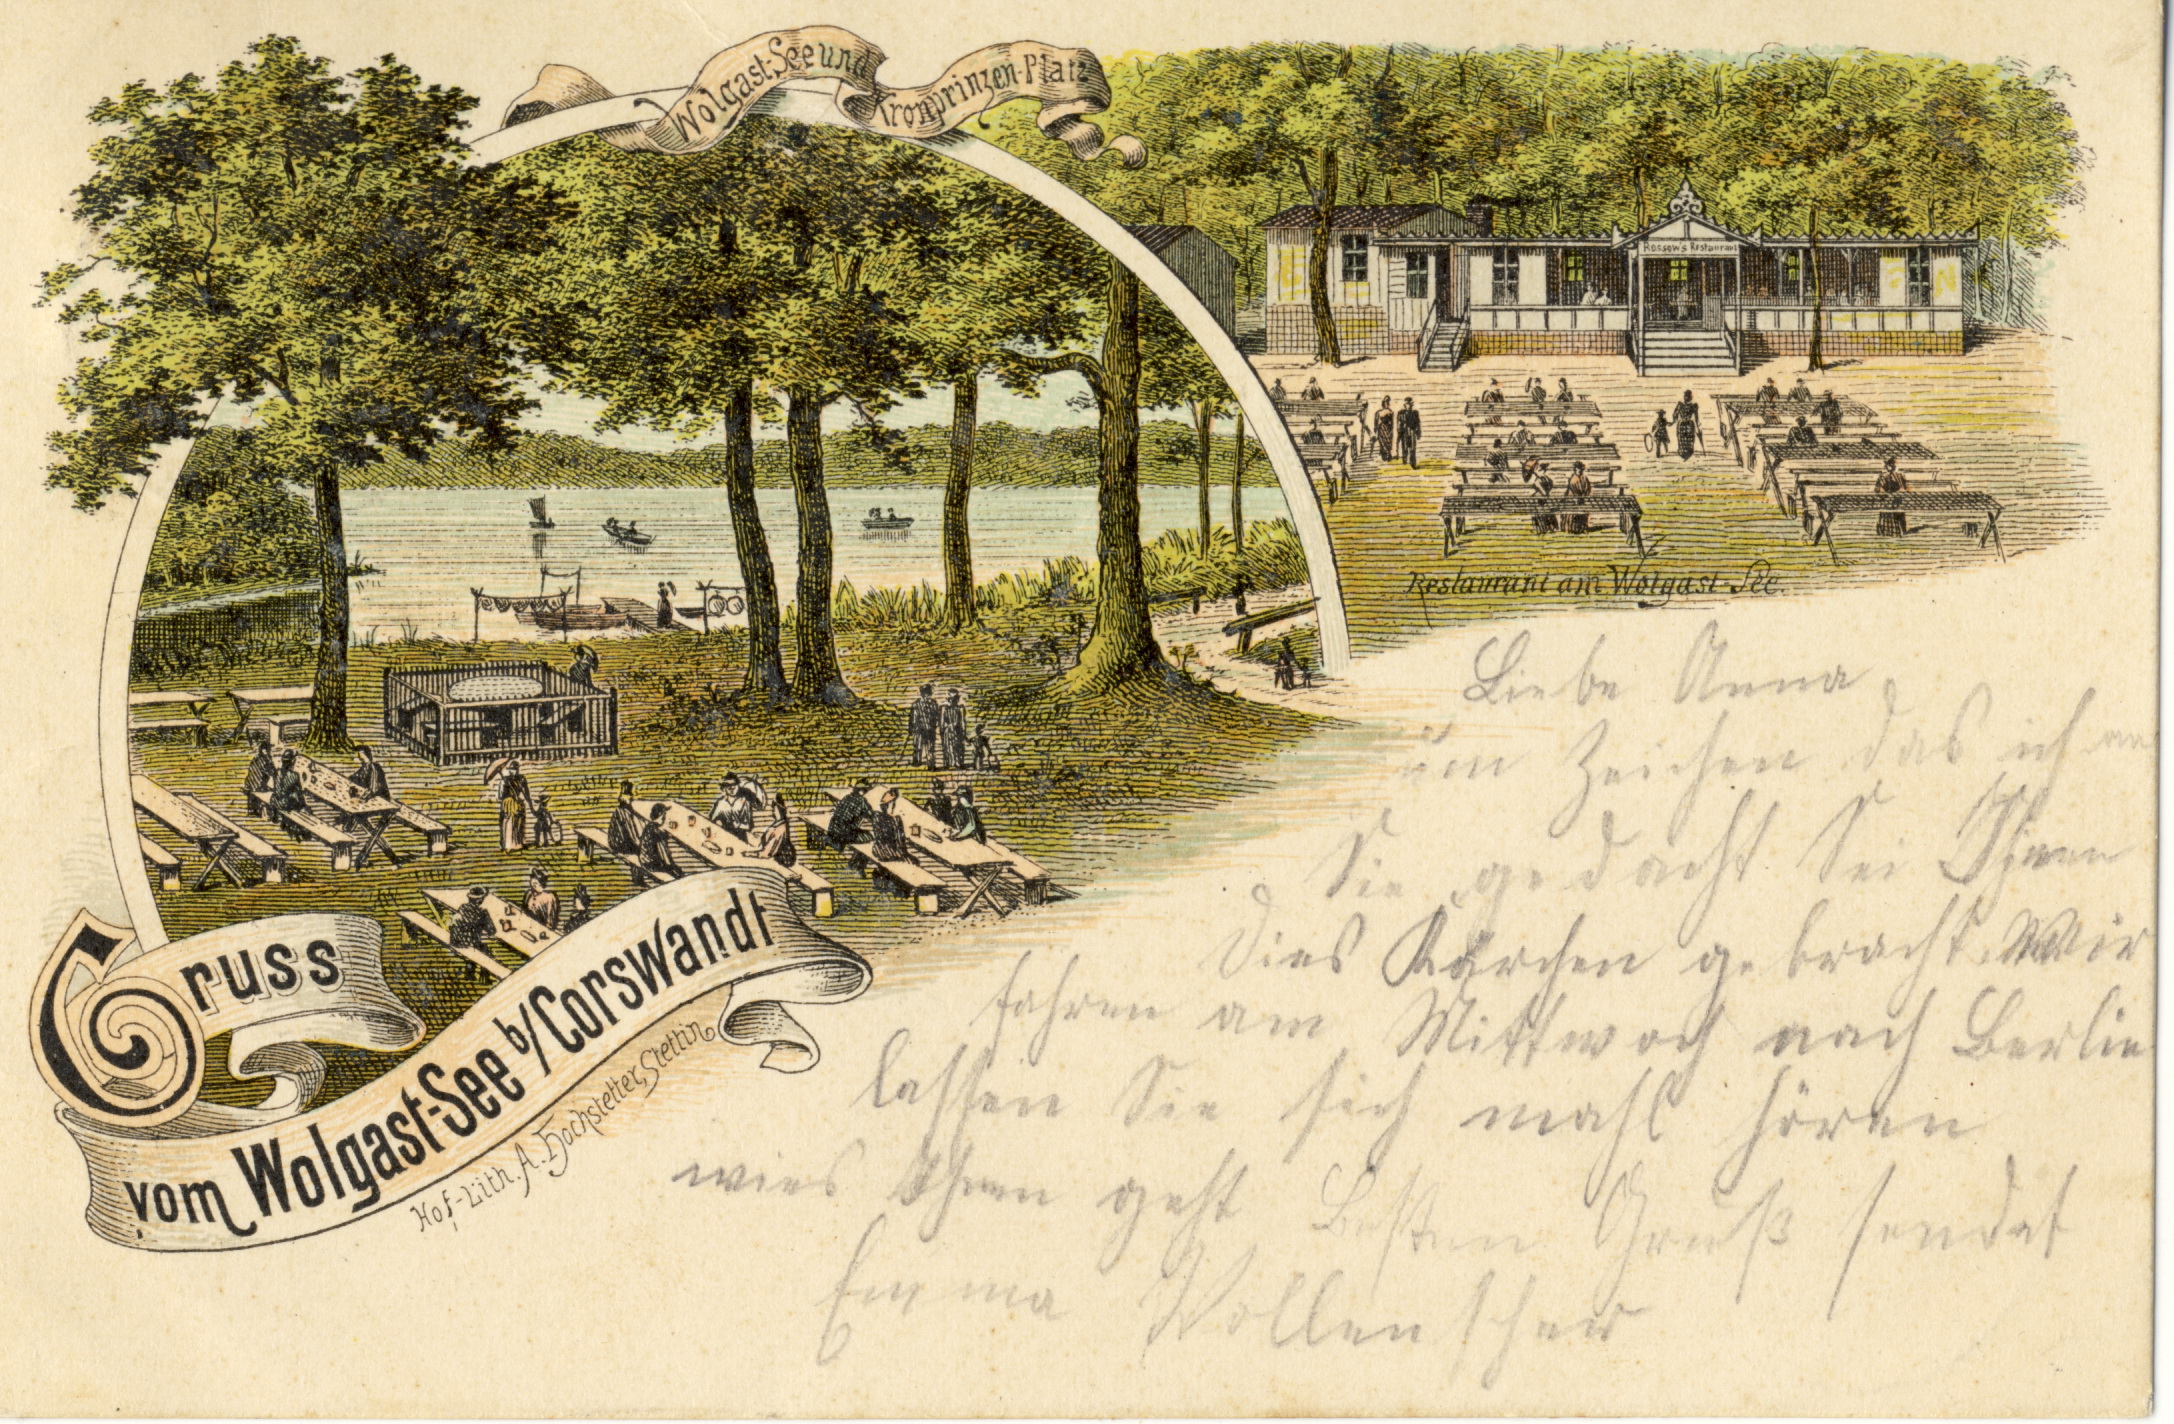 Wolgast-See und
Kronprinzen-Platz
Rossow's Restaurant
Restaurant am Wolgast-See.
Gruss
vom Wolgast-See b/Corswandt
Hof-Lith. A. Hochstetter, Stettin
Liebe Anna
um Zeichen das ich an
Sie gedacht sei Ihnen
dies Kärtchen gebracht. Wir
fahren am Mittwoch nach Berlin
lassen Sie sich mahl hören
wies Ihnen geht Besten Gruß sendet
Emma